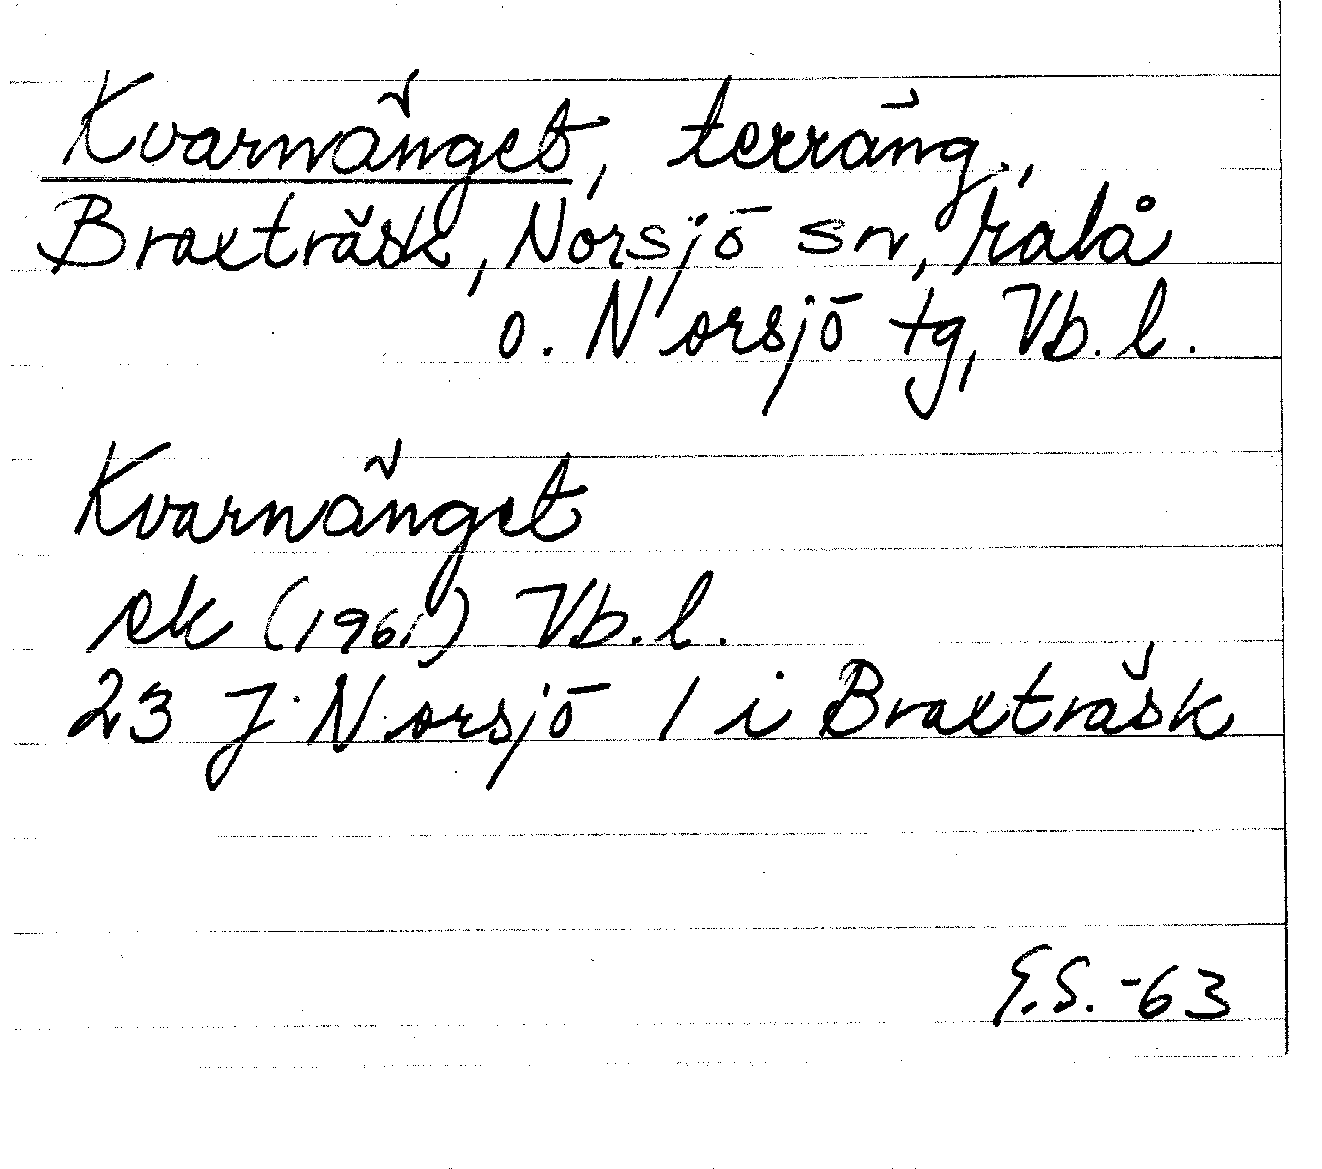 Kvarnänget, terräng,
Braxträsk, Norsjö sn, Malå
o. Norsjö tg, Vb. l.
Kvarnänget
ek (1961) Vb. l.
23 J Norsjö 1 i Braxträsk
G.S. -63